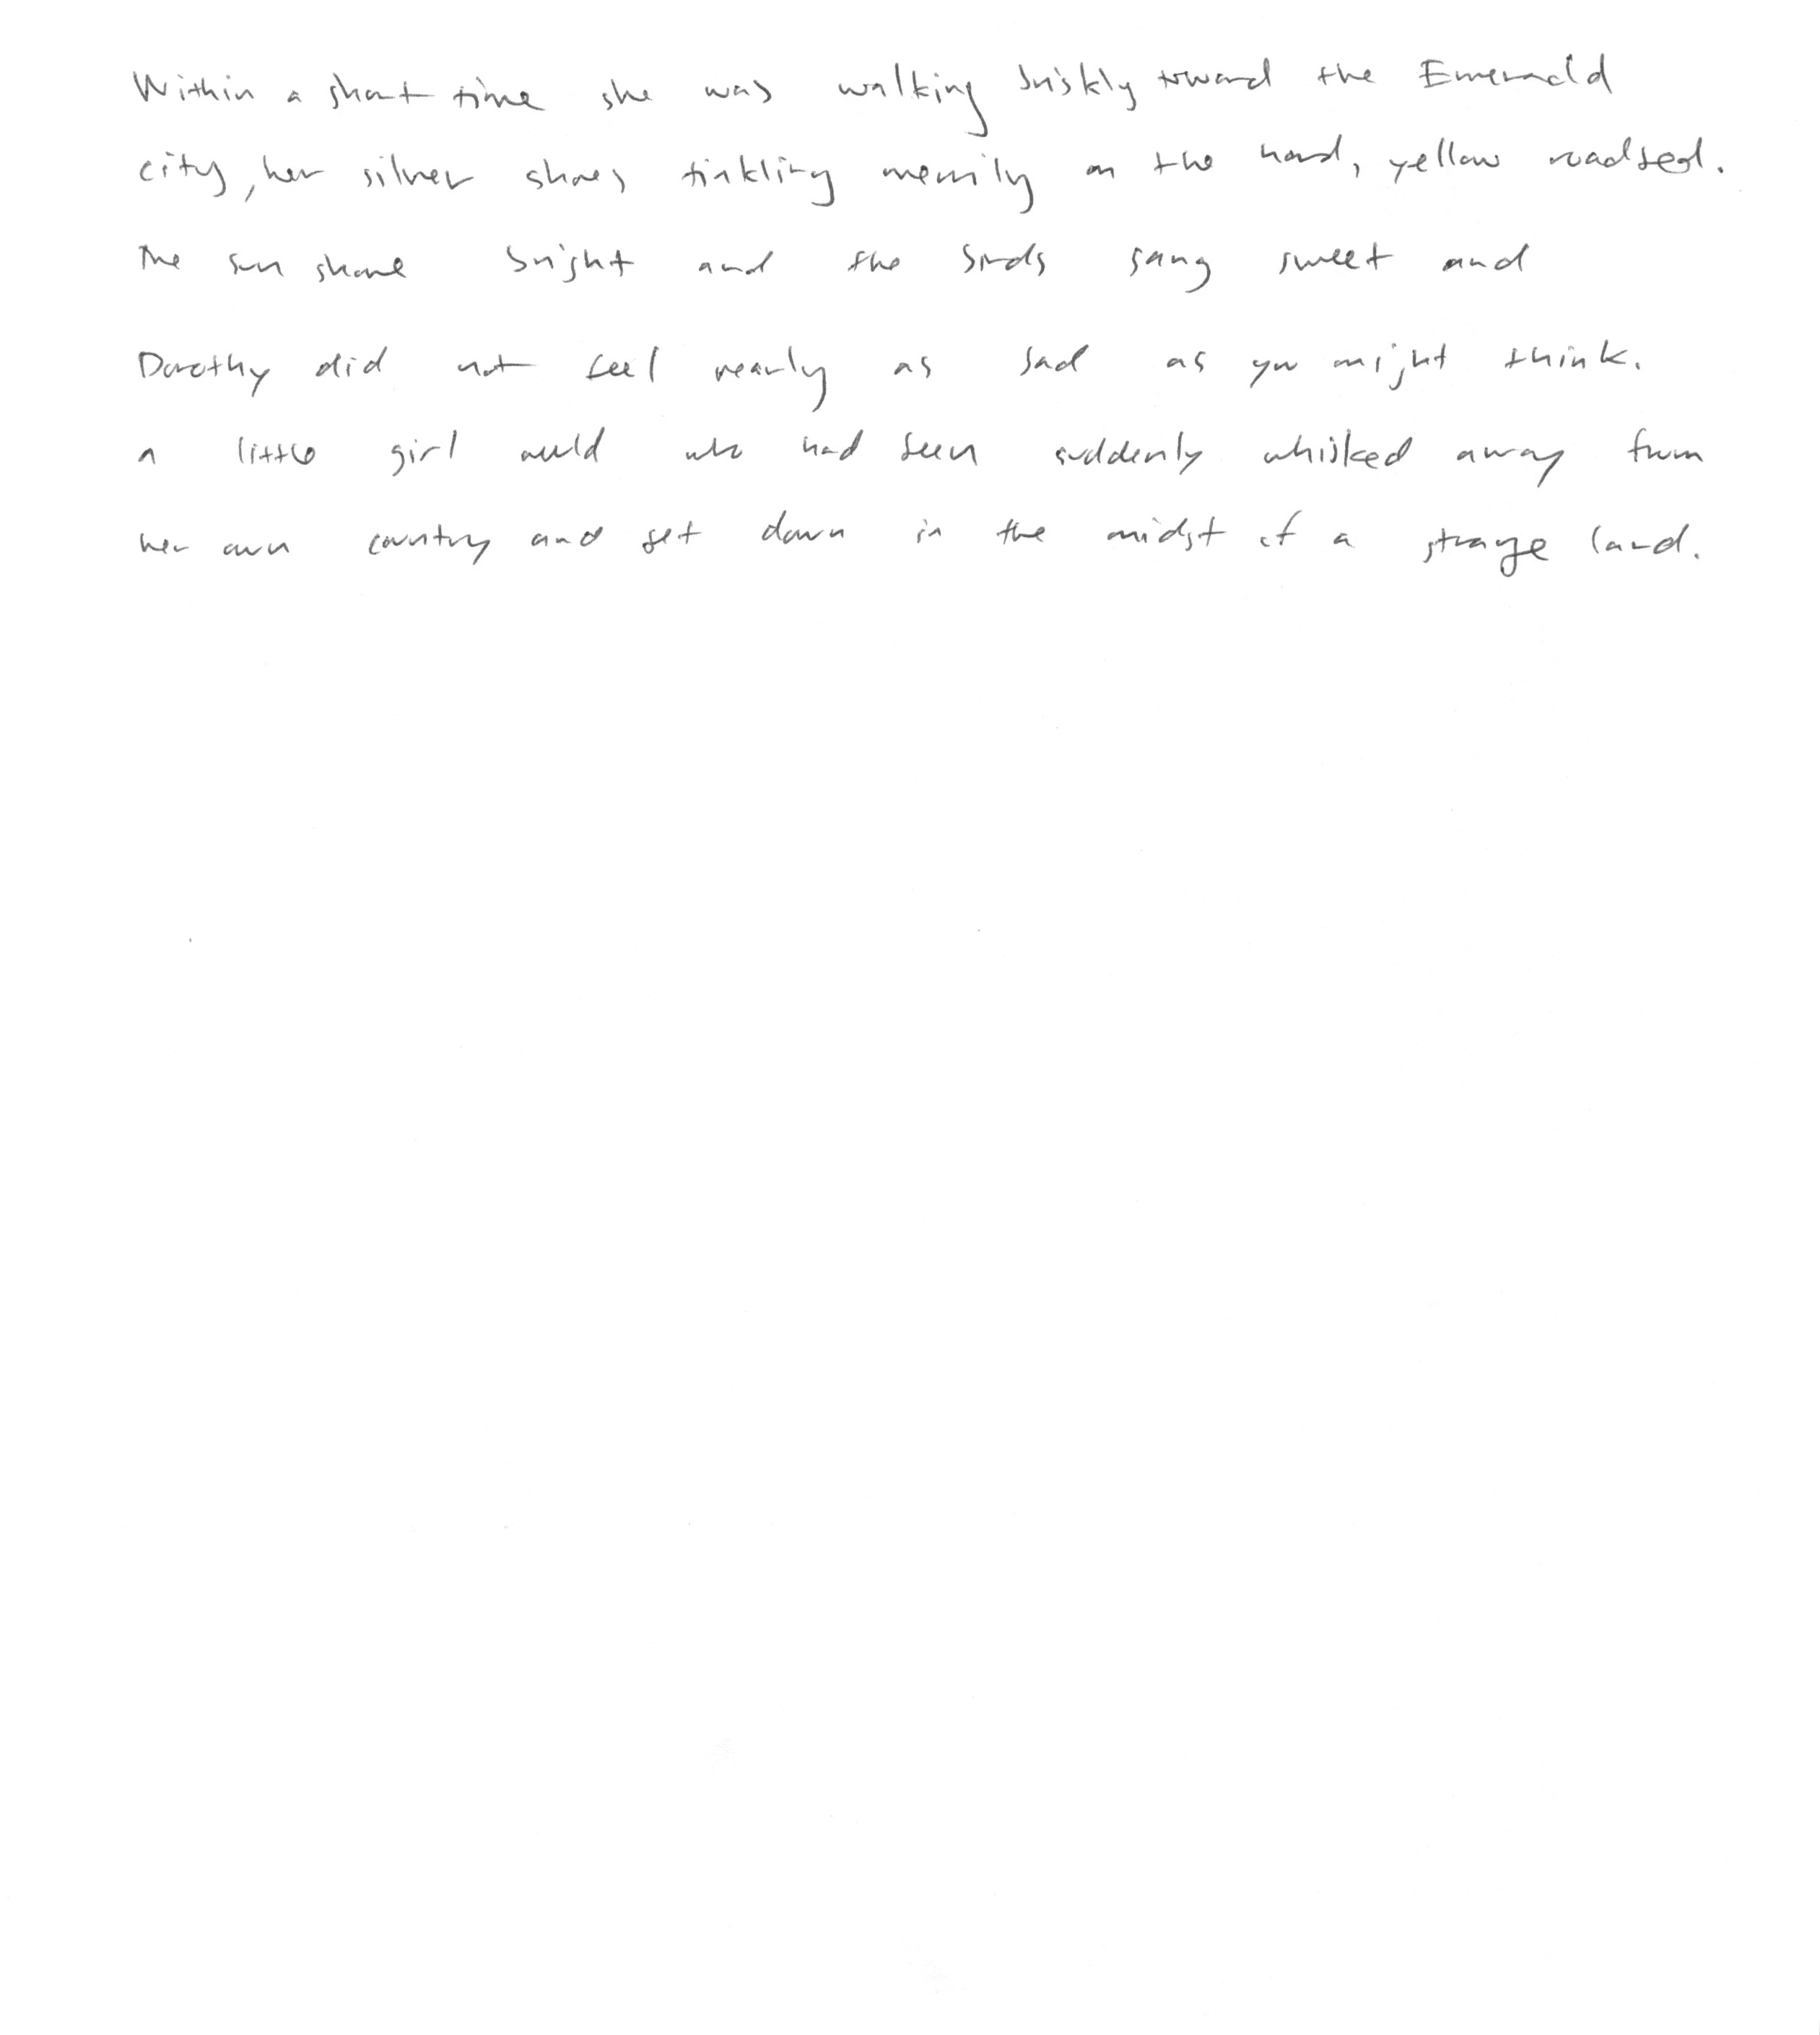 Within a short time she was walking briskly toward the Emerald
city, her silver shoes tinkling merrily on the hard, yellow roadbed.
The sun shone bright and the birds sang sweet and
Dorothy did not feel nearly as sad as you might think.
a little girl would who had been suddenly whisked away from
her own country and set down in the midst of a strange land.